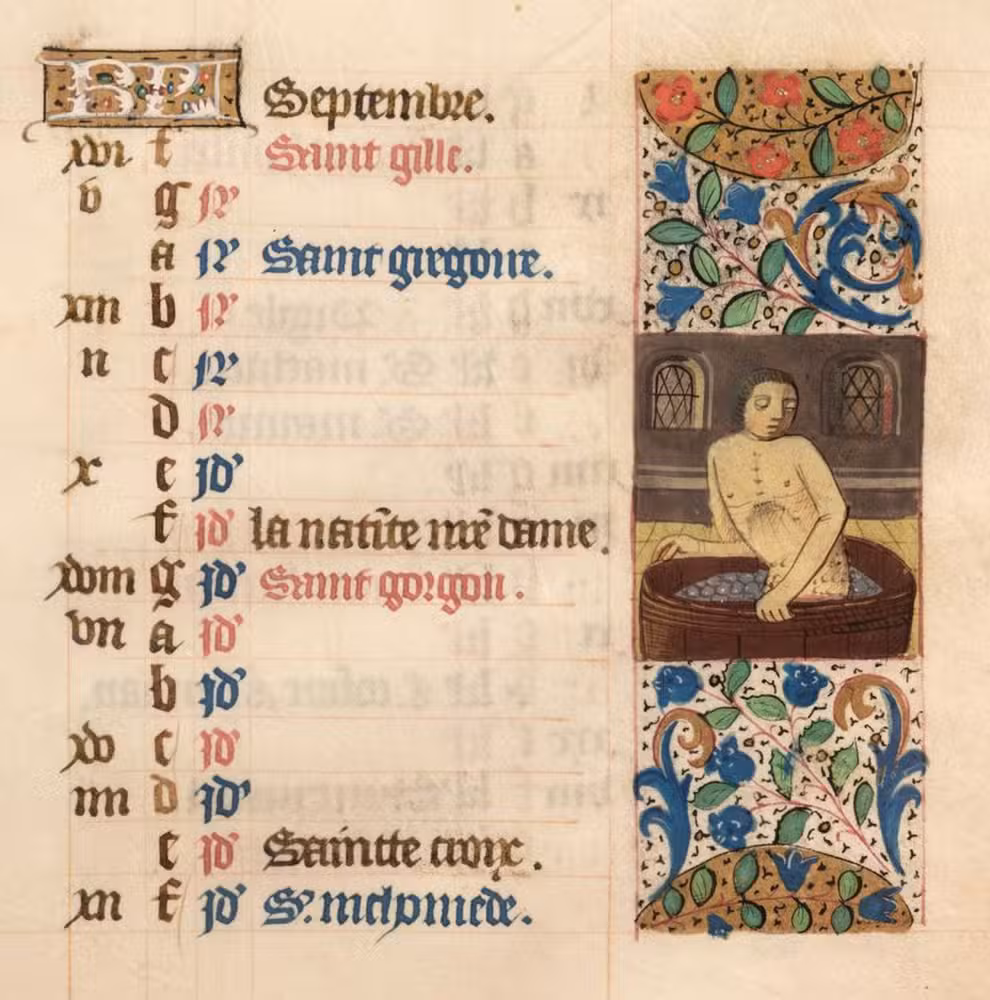 KL Septembre.
xvi f Saint gille.
v g N
a N Saint gregoire.
xiii b N
ii c N
d N
x e id'
f id' la natīte nr̄e dame.
xviii g id' Saint gorgon.
vii a id'
b id'
xv c id'
iiii d id'
e id' Saintte croix.
xii f id' S.